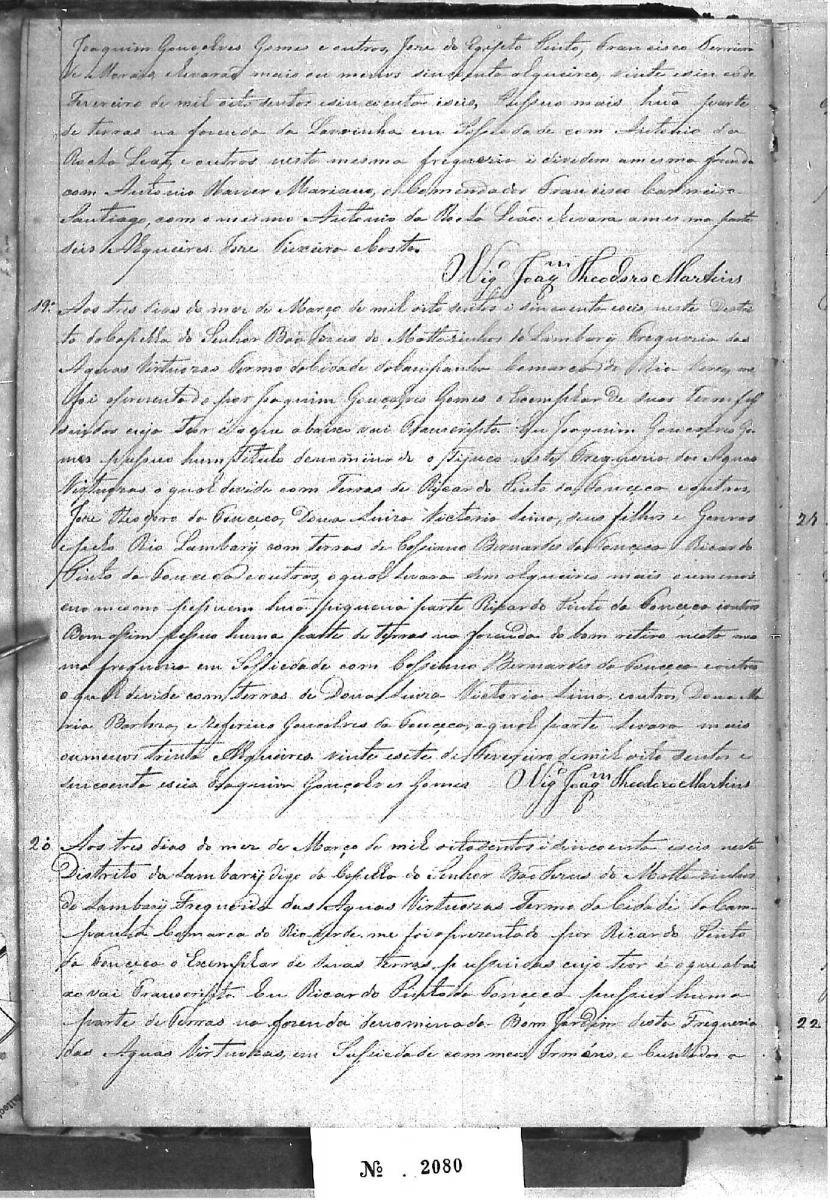 Joaquim Gonçalves Gomes e outros, Jose do Egipto Pinto, Francisco Ferreira
de Morais, levará mais ou menos sincoenta alqueires, vinte e seis de
Fevereiro de mil oito sentos e sincoenta e seis, Pussuo mais huã parte
de terras na fazenda da Lavrinha em Sossiedade com Antonio da
Rocha Leão, e outros nesta mesma freguezia e dividem a mesma fazenda
com Antonio Xavier Mariano, e Comendador Francisco Carneiro
Santiago, com o mesmo Antonio da Rocha Leão: levara a mesma parte
seis Alqueires Jose Teixeira Costa.
Vigº Joaqm Theodoro Martins
19: Aos tres dias do mez de Março de mil oito sentos e sincoenta e seis, neste Destri
to da Capella do Senhor Bão Jezus de Mattozinhos do Lambary Freguezia das
Aguas Virtuozas Termo da Cidade da Campanha Comarca do Rio Verde, me
foi apresentado por Joaquim Gonçalves Gomes o Exemplar de suas Terras pos
suidas cujo Teor é o que abaixo vai Transcripto. Eu Joaquim Gonçalves Go
mes pussuo hum Titulo denominado o Tijuco nesta Freguezia das Aguas
Virtuozas o qual devide com Terras de Ricardo Pinto da Fonçeca e outros,
Jose Theodoro da Fonçeca, Dona Luiza Victoria Lima, seus filhos e Genros
e pelo Rio Lambary com terras de Cassiano Bernardes da Fonçeca e Ricardo
Pinto da Fonçeca e outros, o qual levara sem alqueires mais ou menos
e no mesmo pussuem huã piquena parte Ricardo Pinto da Fonçeca e outros
Bem assim pussuo huma parte de terras na fazenda do bom retiro nesta mes
ma freguezia em Sossiedade com Cassiano Bernardes da Fonçeca e outros
o qual devide com terras de Dona Luiza Victoria Lima, e outros, Dona Ma
ria Barboza, e Zeferino Goncalves da Fonçeca, a qual parte levara mais
ou menos trinta Alqueires vinte e sete de Fevereiro de mil oito sentos e
sincoenta e seis Joaquim Gonçalves Gomes Vigº Joaqm Theodoro Martins
20 Aos tres dias do mez de Março de mil oito sentos e sincoenta e seis neste
Distrito da Lambary digo da Capella do Senhor Bão Jezus de Mattozinhos
do Lambary Freguezia das Aguas Virtuozas Termo da Cidade da Cam
panha Comarca do Rio Verde, me foi apresentado por Ricardo Pinto
da Fonçeca o Exemplar de suas terras pussuidas cujo teor é o que abai
xo vai Transcripto. Eu Ricardo Pinto da Fonçeca pussuo huma
parte de Terras na fazenda denominada Bom Jardim desta Freguezia
das Aguas Virtuozas, em Sussiedade com meos Irmãos, e Cunhados a
21
22
Nº . 2080